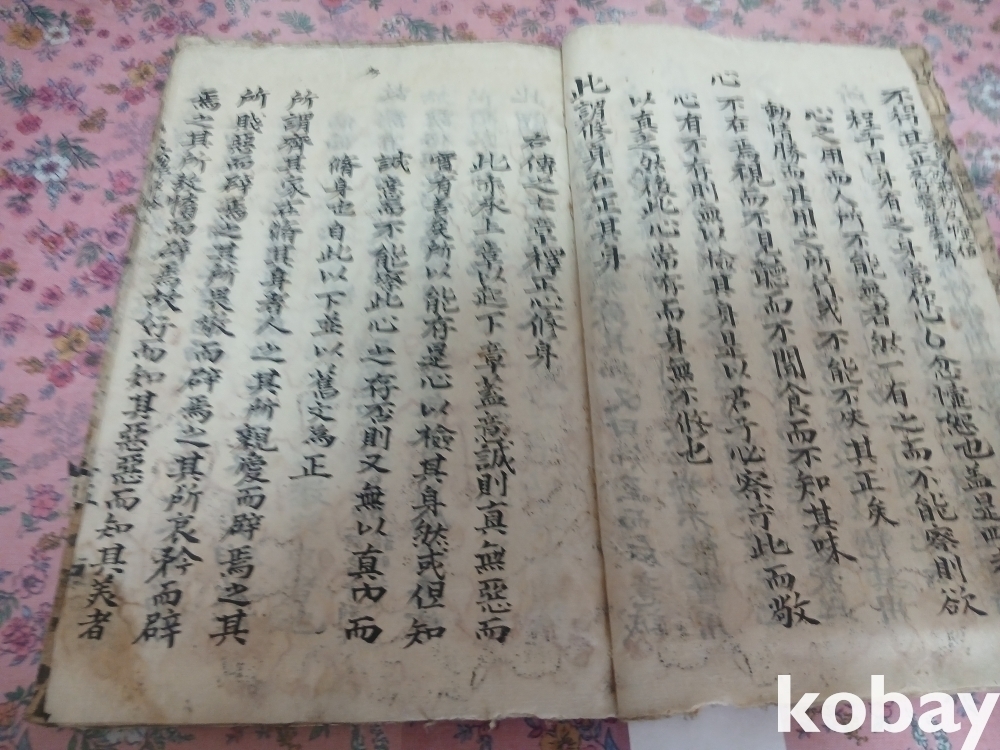 不得其正有所
程子曰身有之身當作心〇忿懥怒也蓋是四者
心之用而人所不能無者然一有之而不能察則欲
動情勝而其用之所行或不能不失其正矣
心不在焉視而不見聽而不聞食而不知其味
心有不存則無以檢其身是以君子必察乎此而敬
以直之然後此心常存而身無不修也
此謂修身在正其身
右傳之七章釋正心修身
此亦承上章以起下章蓋意誠則真無惡而
實有善矣所以能存是心以檢其身然或但知
誠意焉不能察此心之存否則又無以真內而
脩身也自此以下並以舊文為正
所謂齊其家在脩其身者人之其所親愛而辟焉之其
所賤惡而辟焉之其所畏敬而辟焉之其所哀矜而辟
焉之其所敖惰而辟焉故好而知其惡惡而知其美者
kobay